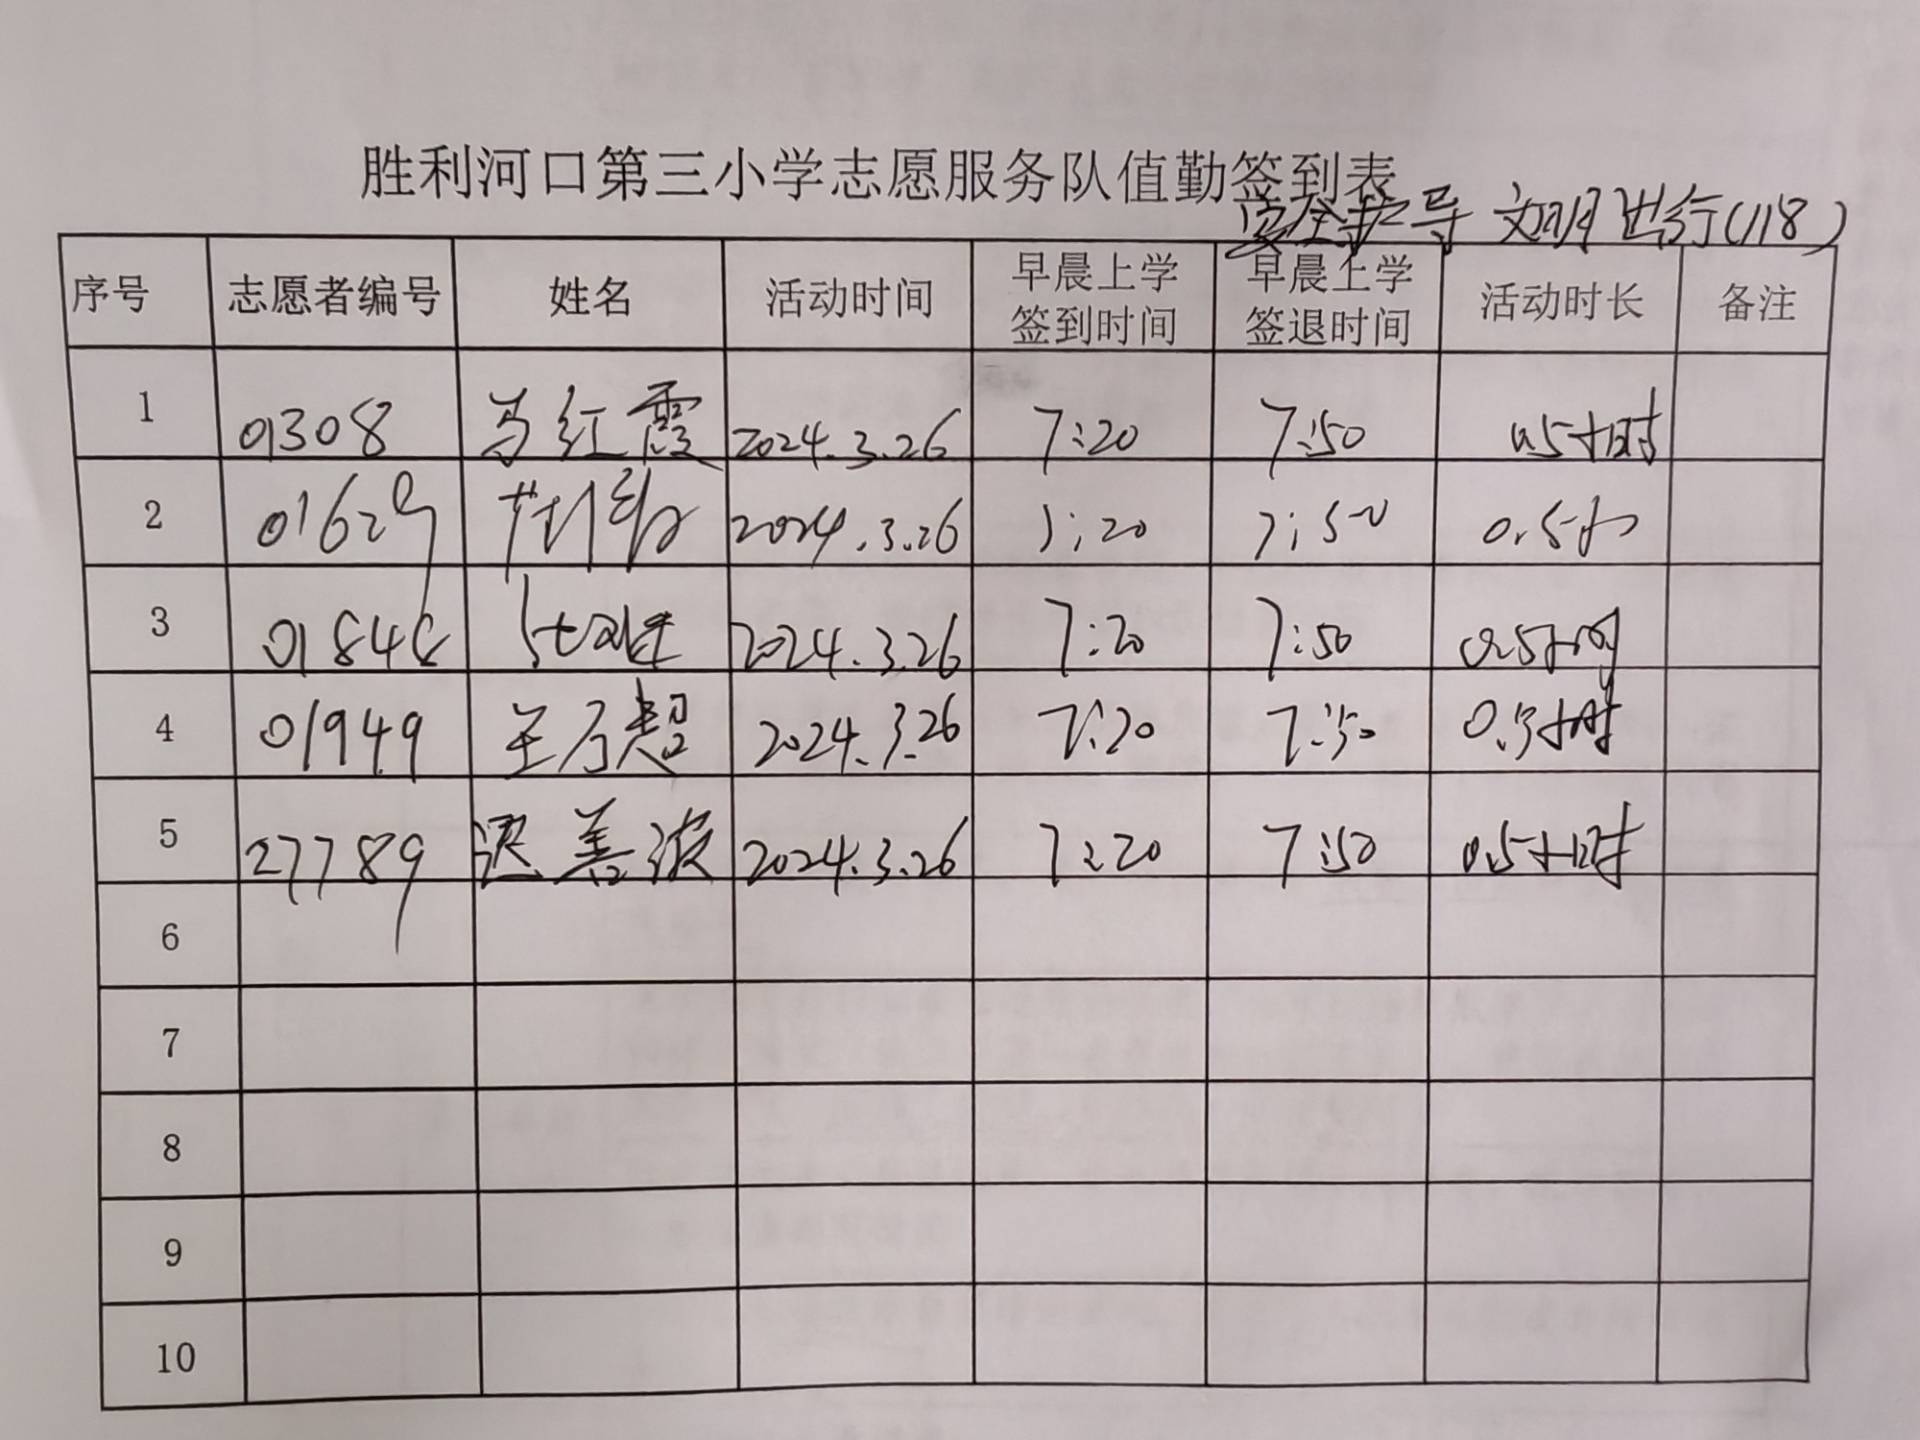 胜利河口第三小学志愿服务队值勤签到表
安全护导 文明进行(118)
序号 志愿者编号 姓名 活动时间 早晨上学签到时间 早晨上学签退时间 活动时长 备注
1 01308 马红霞 2024.3.26 7:20 7:50 0.5小时
2 01629 2024.3.26 7:20 7:50 0.5小
3 01848 2024.3.26 7:20 7:50 0.5小时
4 01949 王乃超 2024.3.26 7:20 7:50 0.5小时
5 27789 迟善波 2024.3.26 7:20 7:50 0.5小时
6
7
8
9
10